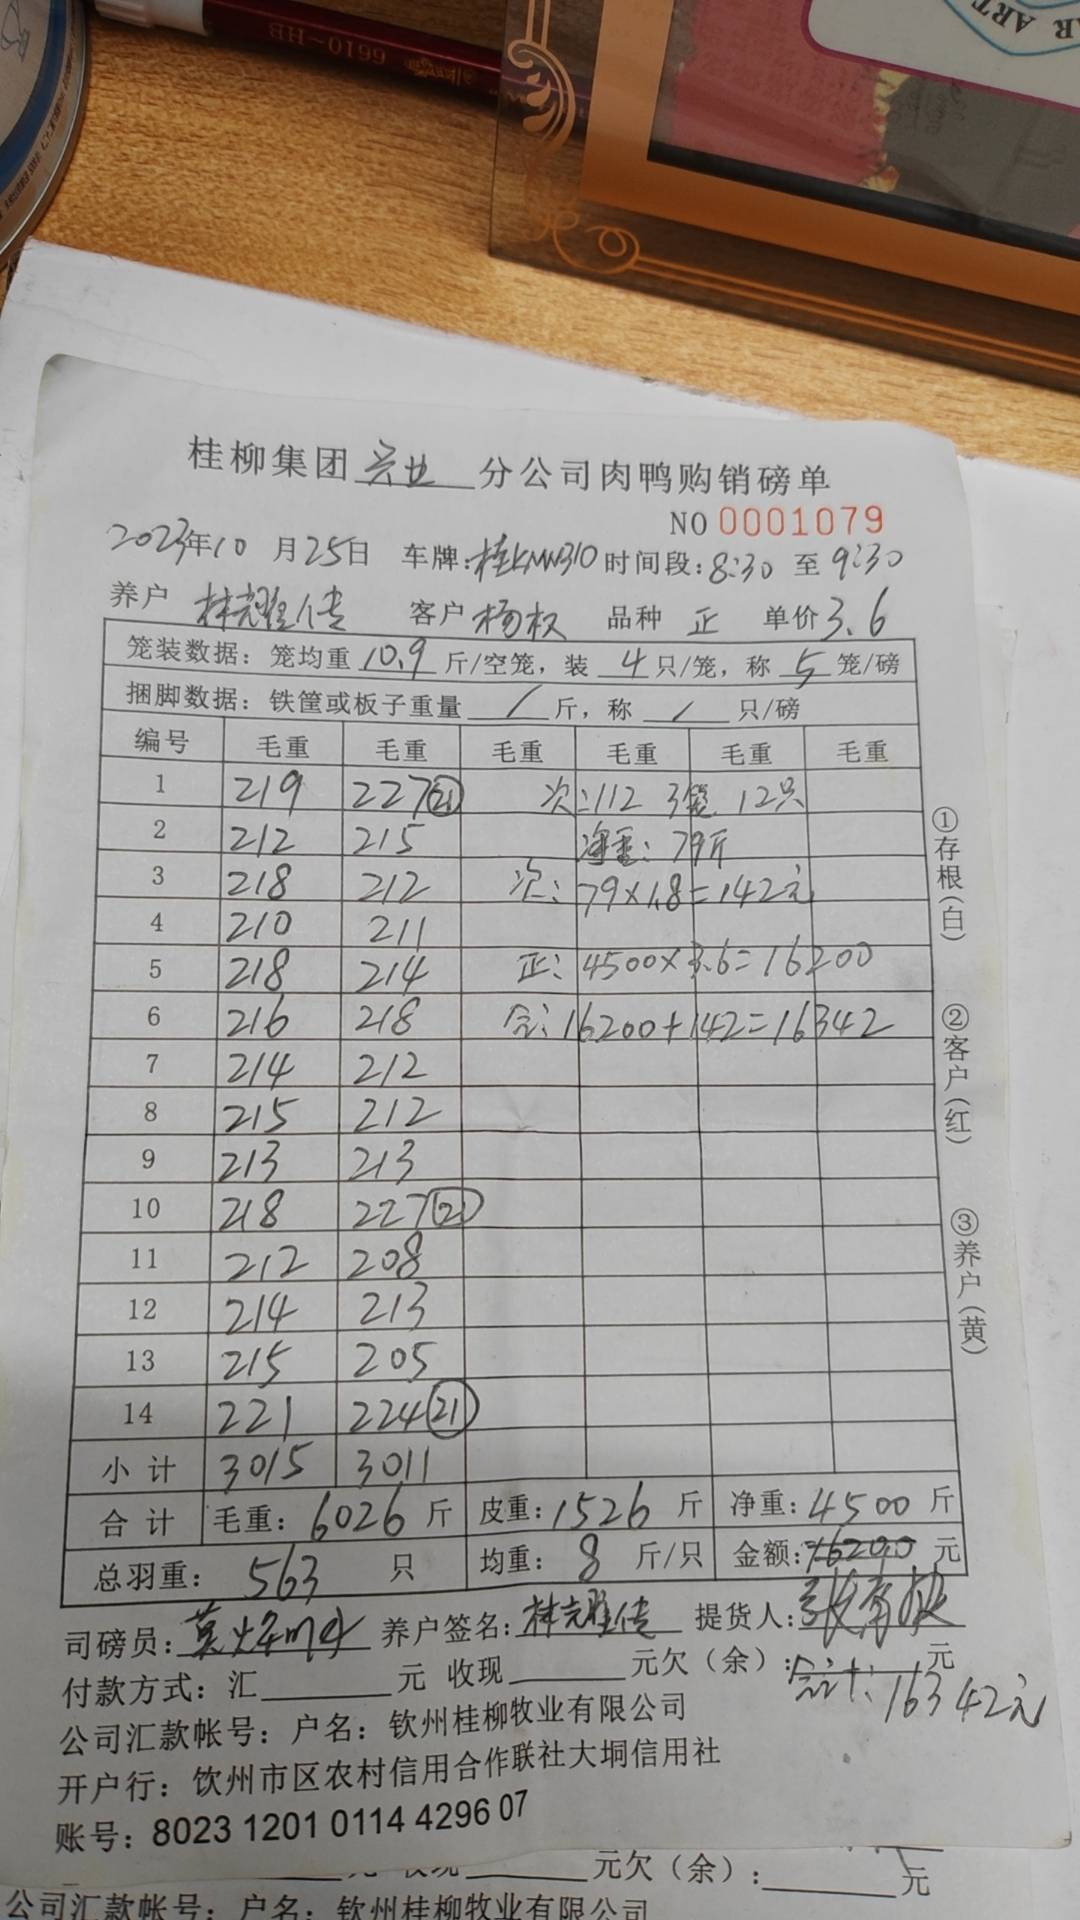 6610-HB
AR ART
桂柳集团兴业分公司肉鸭购销磅单
NO 0001079
2023年10月25日 车牌:桂KMW310 时间段:8:30 至 9:30
养户 林耀传 客户 杨权 品种 正 单价 3.6
笼装数据:笼均重 10.9 斤/空笼,装 4 只/笼,称 5 笼/磅
捆脚数据:铁筐或板子重量 / 斤,称 / 只/磅
编号 毛重 毛重 毛重 毛重 毛重 毛重
1 219 227 (21) 次:112 3笼 12只
2 212 215 净重:79斤
3 218 212 次:79×1.8=142元
4 210 211
5 218 214 正:4500×3.6=16200
6 216 218 合:16200+142=16342
7 214 212
8 215 212
9 213 213
10 218 227 (21)
11 212 208
12 214 213
13 215 205
14 221 224 (21)
小计 3015 3011
合计 毛重:6026 斤 皮重:1526 斤 净重:4500 斤
总羽重: 563 只 均重: 8 斤/只 金额:16200 元
①存根(白)
②客户(红)
③养户(黄)
司磅员: 养户签名:林耀传 提货人:
付款方式:汇 元 收现 元欠(余): 元
合计:16342元
公司汇款帐号:户名:钦州桂柳牧业有限公司
开户行:饮州市区农村信用合作联社大垌信用社
账号:8023 1201 0114 4296 07
元 收现 元欠(余): 元
公司汇款帐号:户名:钦州桂柳牧业有限公司